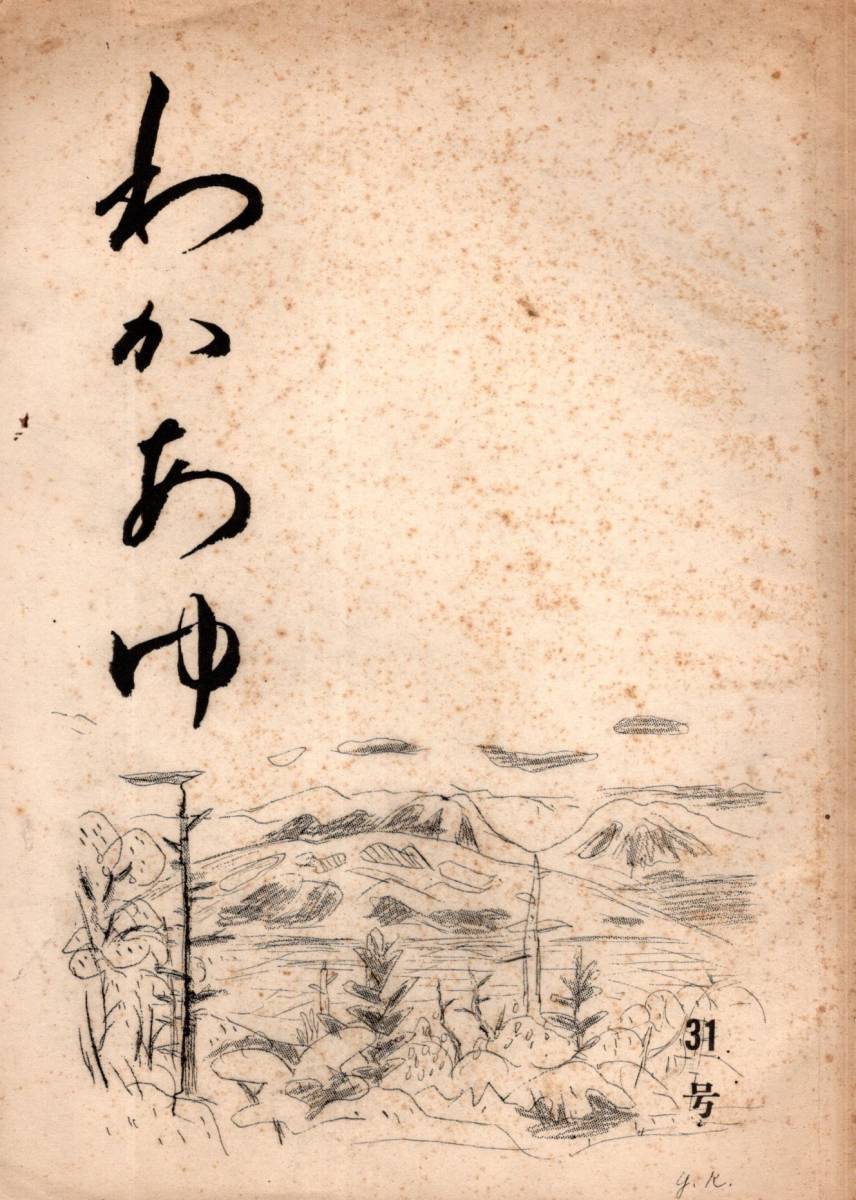 わかあゆ
31
号
y. K.